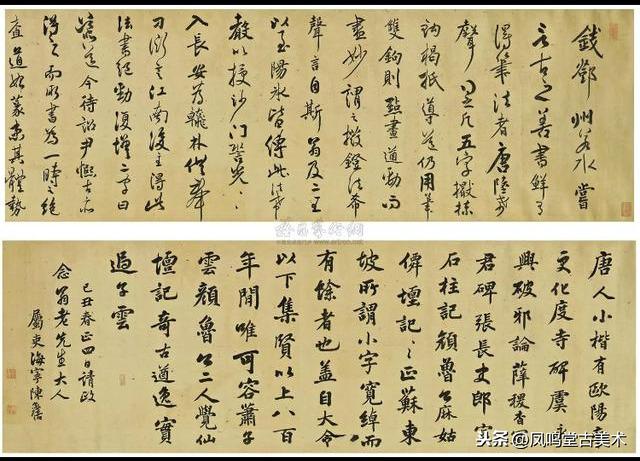 錢鄧州若水嘗
言古之善書鮮有
得筆法者唐陸希
聲得凡五字擫捺
鈎揭抵導送仍用筆
雙鈎則點畫遒勁而
盡妙謂之撥鐙法希
聲言自斯翁及二王
以至陽冰皆傳此法
以授沙門䛒光光
入長安為翰林供奉
刁衎之江南後主得此
法書絕勁復增二字曰
導送今待詔尹熙古亦
得之而所書為一時之絕
查道始蒙其體勢
唐人小楷有歐陽率
更化度寺碑虞永
興破邪論薛稷杳
君碑張長史郎官
石柱記顏魯公麻姑
僊壇記記正蘇東
坡所謂小字寬綽而
有餘者也蓋自大令
以下集賢以上八百
年間唯可容蕭子
雲顏魯公二人覺仙
壇記奇古遒逸實
過子雲
己丑春正四日請政
念翁老先生大人
屬東海寧陳奕禧
头条@凤鸣堂古美术